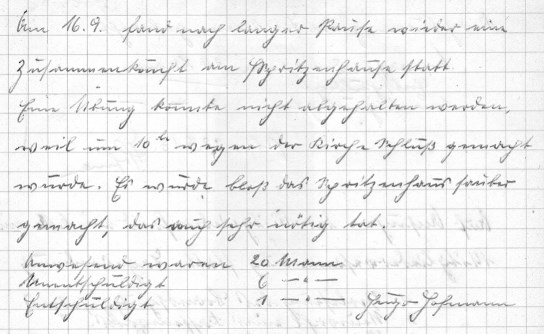 Am 16. 9. fand nach langer Pause wieder eine
Zusammenkunft am Spritzenhause statt.
Eine Übung konnte nicht abgehalten werden,
weil um 10 h wegen der Kirche Schluß gemacht
wurde. Es wurde bloß das Spritzenhaus sauber
gemacht, das auch sehr nötig tat.
Anwesend waren 20 Mann
Unentschuldigt 6 — " —
Entschuldigt 1 — " — Hugo Hofmann